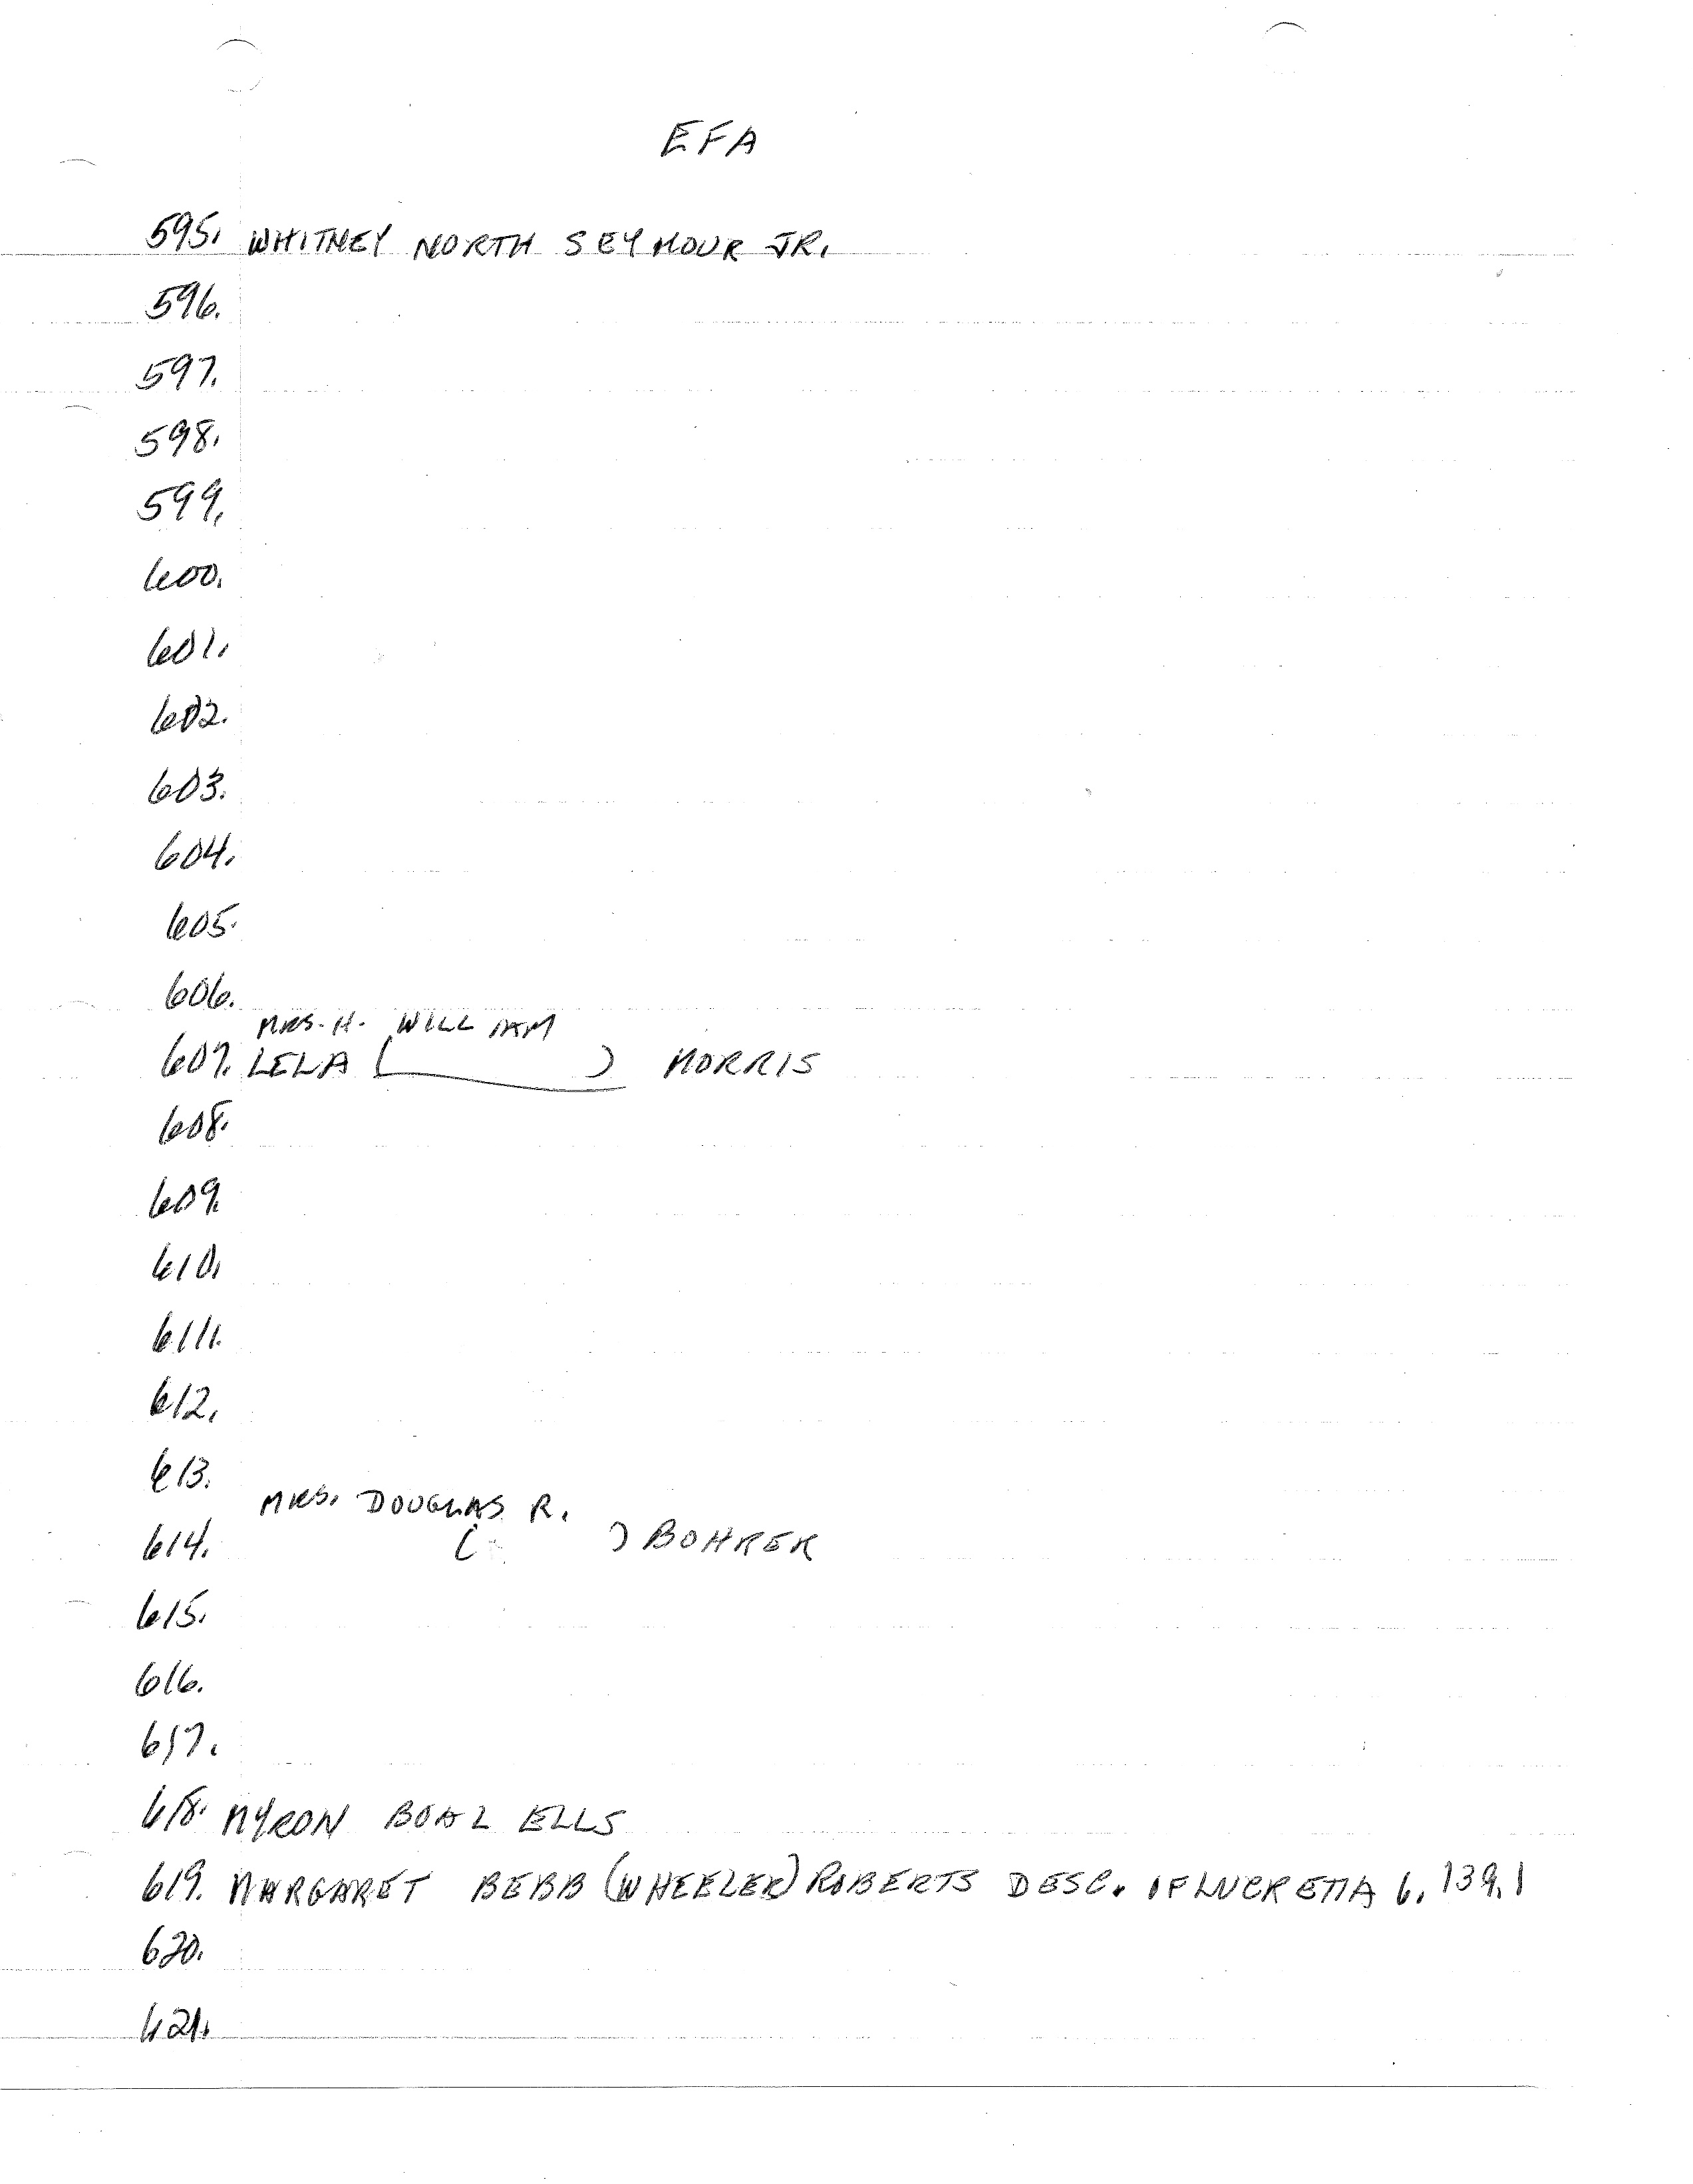 EFA
595. WHITNEY NORTH SEYMOUR JR.
596.
597.
598.
599.
600.
601.
602.
603.
604.
605.
606.
MRS. H. WILLIAM
607. LELA ( ) MORRIS
608.
609.
610.
611.
612.
613.
MRS. DOUGLAS R.
614. ( ) BOHRER
615.
616.
617.
618. MYRON BOAL ELLS
619. MARGARET BEBB (WHEELER) ROBERTS DESC. OF LUCRETIA 6.139.1
620.
621.